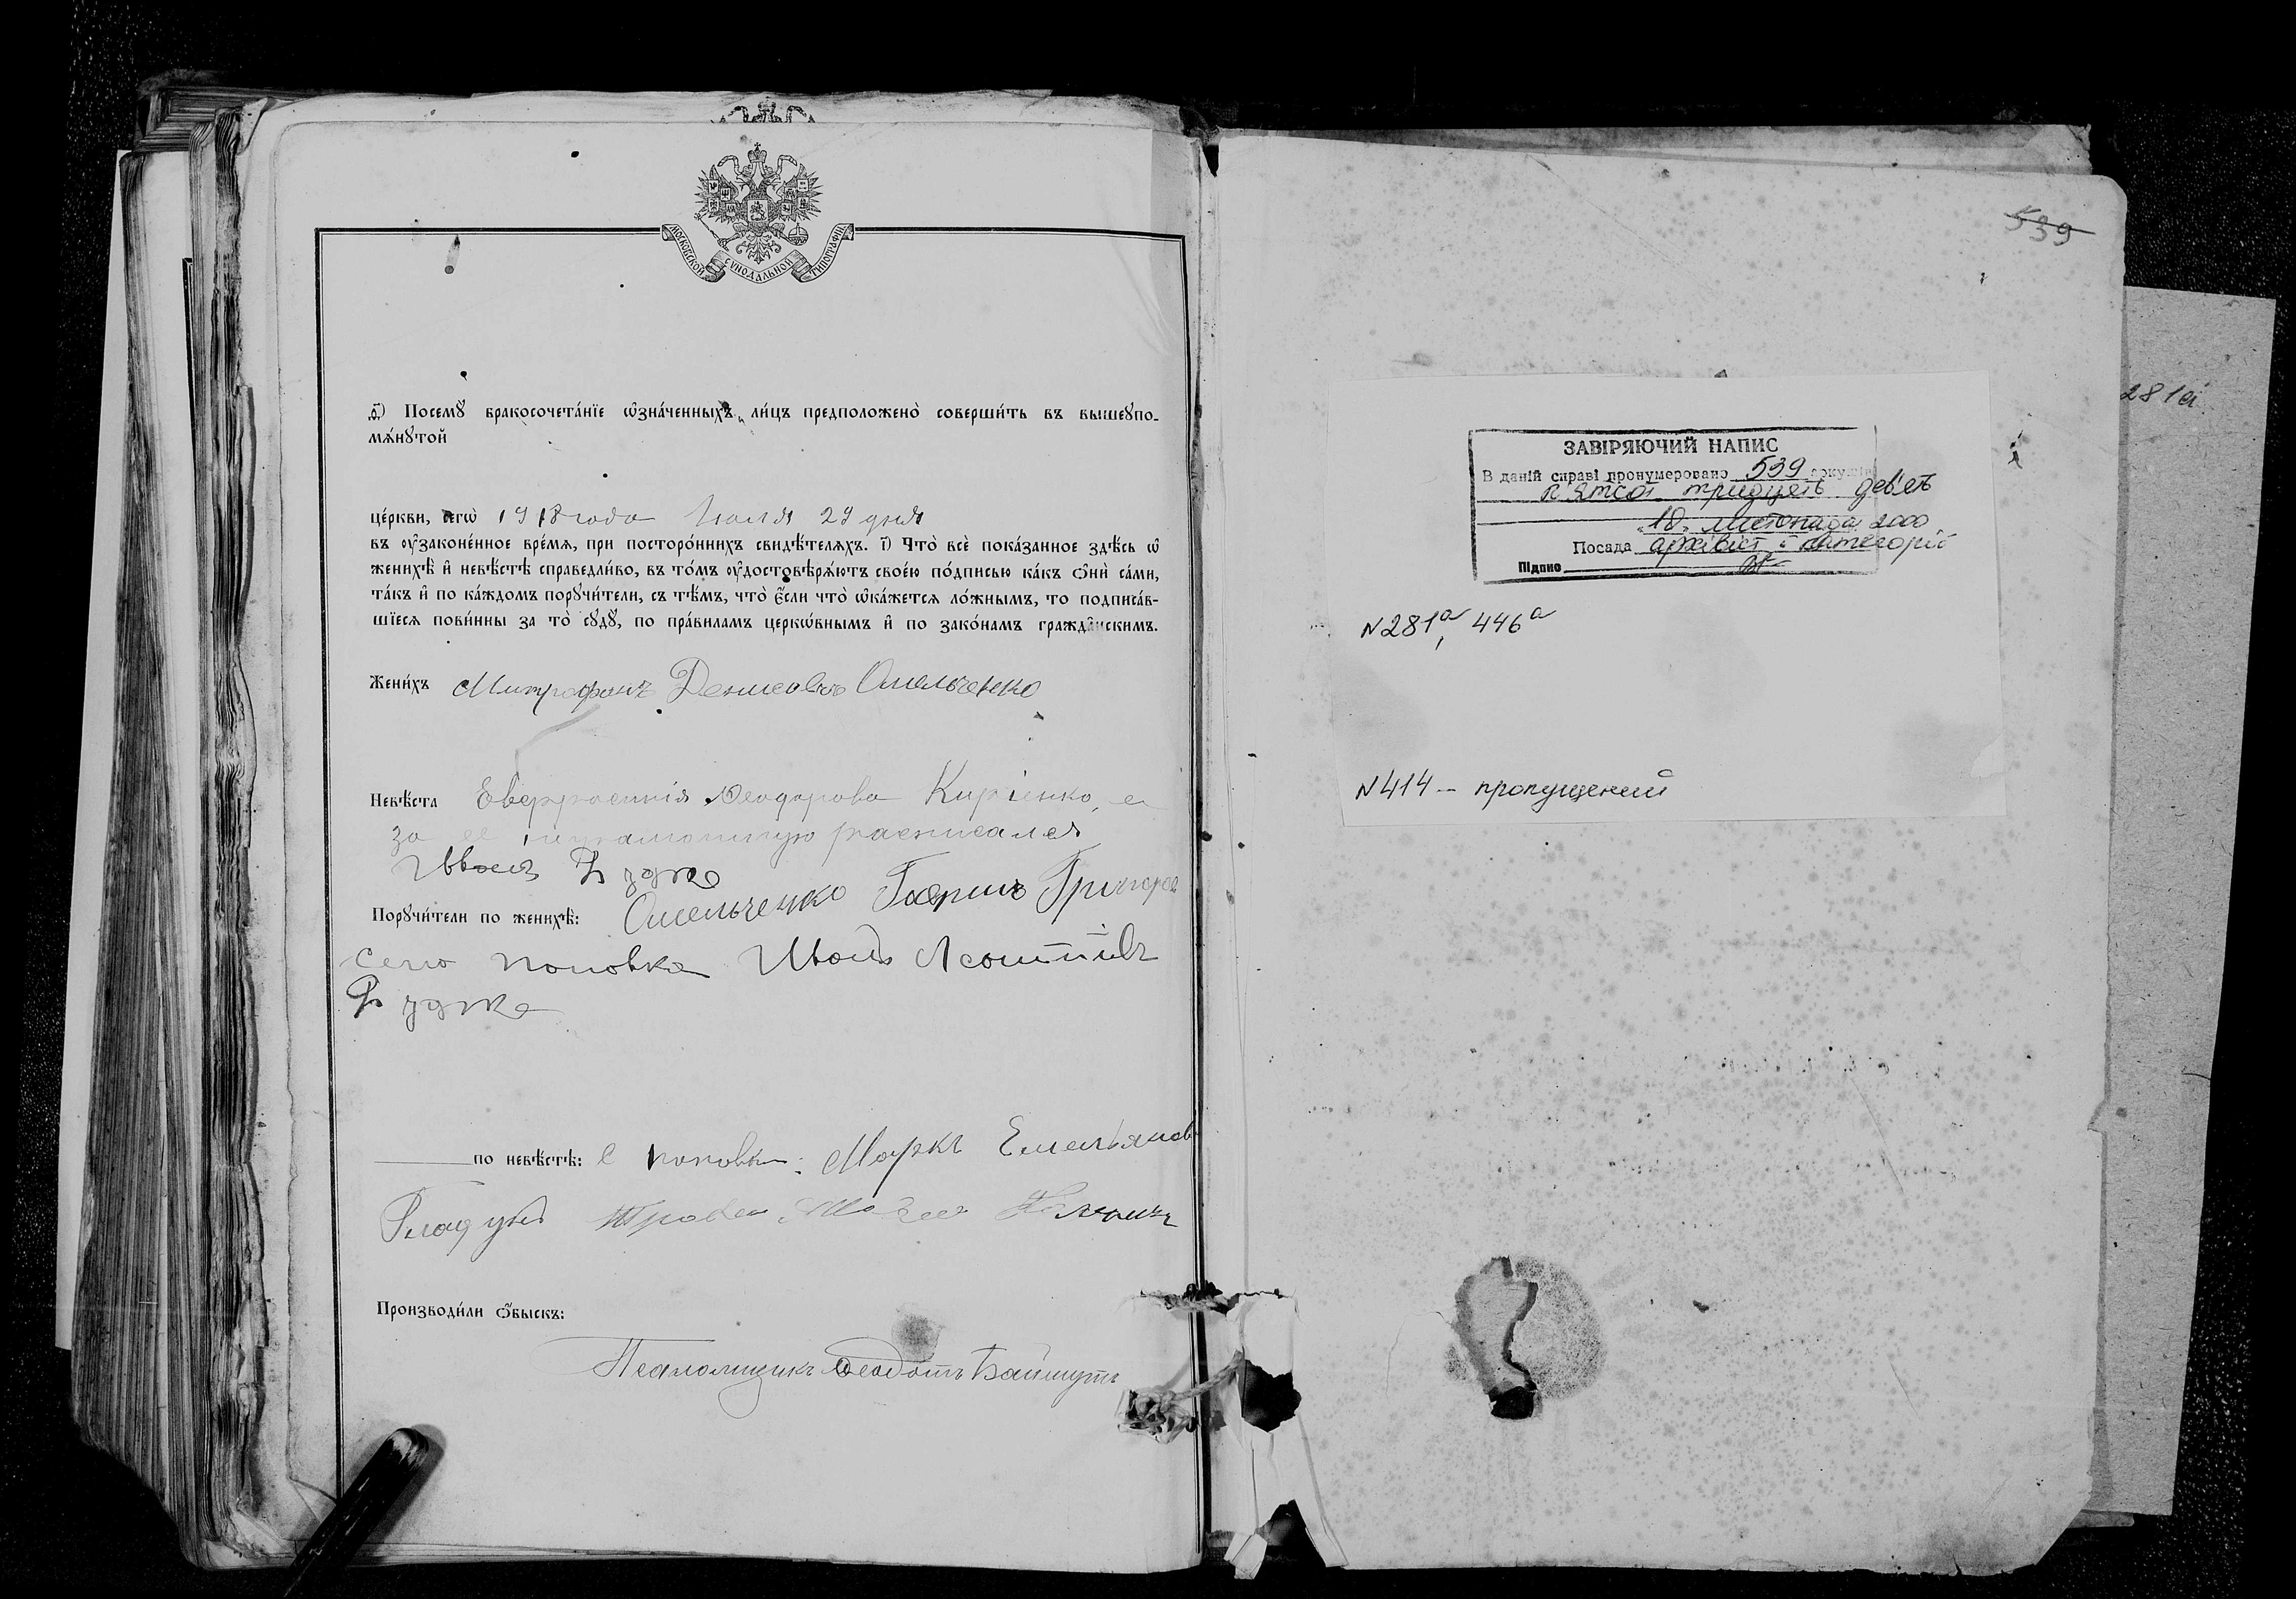 МОСКОВСКОЙ СѴНОДАЛЬНОЙ ТИПОГРАФІИ
Посемꙋ̀ бракосочета́нїе ѡ҆зна́ченныхъ ли́цъ предположено̀ соверши́ть въ вышеꙋпо-
мѧ́нꙋтой
це́ркви, сегѡ̀ 1918 года Іюля 29 дня
въ ᲂу҆законе́нное вре́мѧ, при посторо́ннихъ свидѣ́телѧхъ. і҃) Что̀ всѐ пока́занное здѣ́сь ѡ҆
женихѣ̀ и҆ невѣ́стѣ справедли́во, въ то́мъ ᲂу҆достовѣрѧ́ютъ свое́ю по́дписью ка́къ ѻ҆нѝ са́ми,
та́къ и҆ по ка́ждомъ порꙋчи́тели, съ тѣ́мъ, что̀ є҆́сли что̀ ѡ҆ка́жетсѧ ло́жнымъ, то подписа́в-
шїесѧ пови́нны за то̀ сꙋдꙋ̀, по пра́виламъ церкѡ́внымъ и҆ по зако́намъ гражда́нскимъ.
Жени́хъ Митрофанъ Денисовъ Омельченко
Невѣ́ста Евфросинія Ѳеодорова Киріенко, а
за ее неграмотную расписался
Иванъ
Порꙋчи́тели по женихѣ̀: Омельченко
село поповка
по невѣ́стѣ: С поповки: Маркъ Емельянов
Гладунъ
Производи́ли ѻ҆́быскъ:
Псаломщикъ Ѳеодотъ Баймутъ
539
281а
ЗАВІРЯЮЧИЙ НАПИС
В даній справі пронумеровано 539 аркушів
п'ятсот тридцять дев'ять
10 листопада 2000
Посада архівіст І категорії
Підпис
N281а, 446а
N414 – пропущений